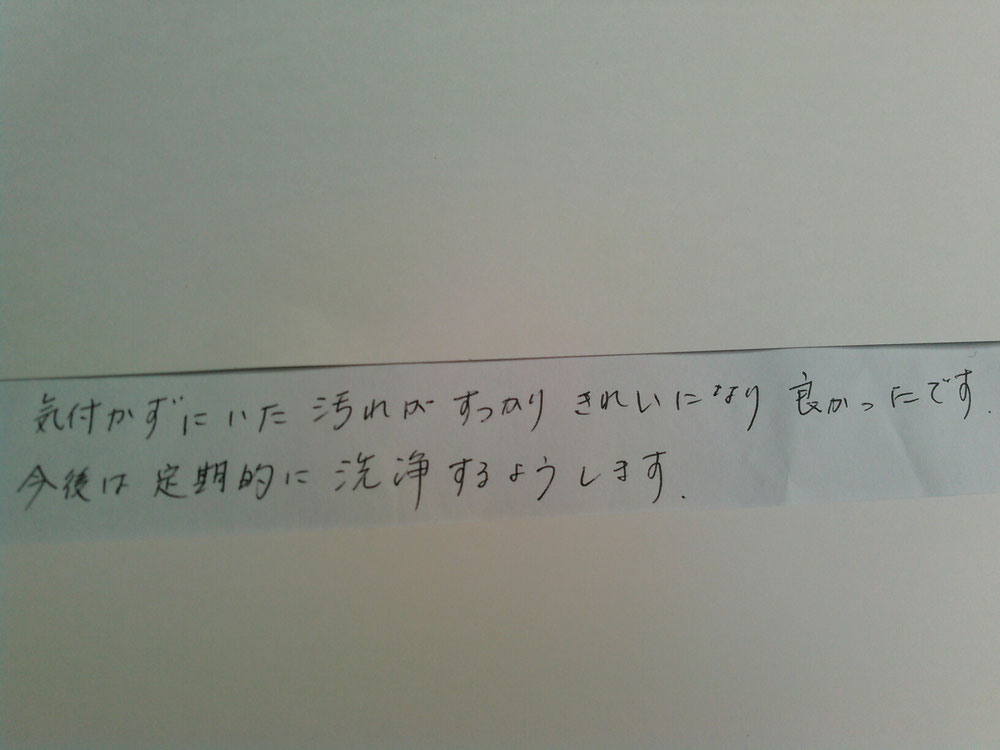 気付かずにいた汚れがすっかりきれいになり良かったです.
今後は定期的に洗浄するようします.